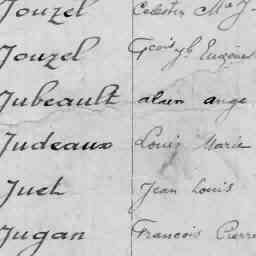 Jouzel Celestin Me J
Jouzel Fcois Jh Eugène
Jubeault alain ange
Judeaux Louis Marie
Juel Jean Louis
Jugan Francois Pierre